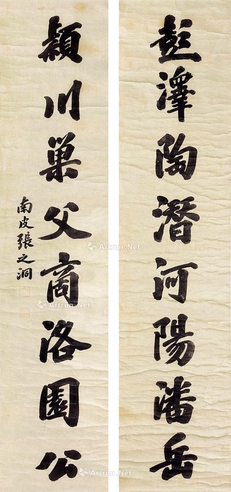 彭澤陶潛河陽潘岳
潁川巢父商洛園公
南皮張之洞